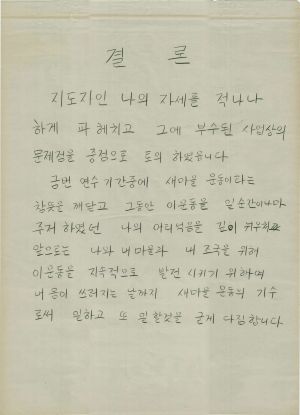 결 론
지도자인 나의 자세를 적나나
하게 파헤치고 그에 부수된 사업상의
문제점을 중점으로 토의 하였읍니다
금번 연수기간중에 새마을 운동이라는
참뜻을 깨닫고 그동안 이운동을 일순간이나마
주저 하였던 나의 어리석음을 깊이
앞으로는 나와 내마을과 내 조국을 위해
이운동을 지속적으로 발전 시키기 위하여
내 몸이 쓰러지는 날까지 새마을 운동의 기수
로써 일하고 또 일할것을 굳게 다짐합니다